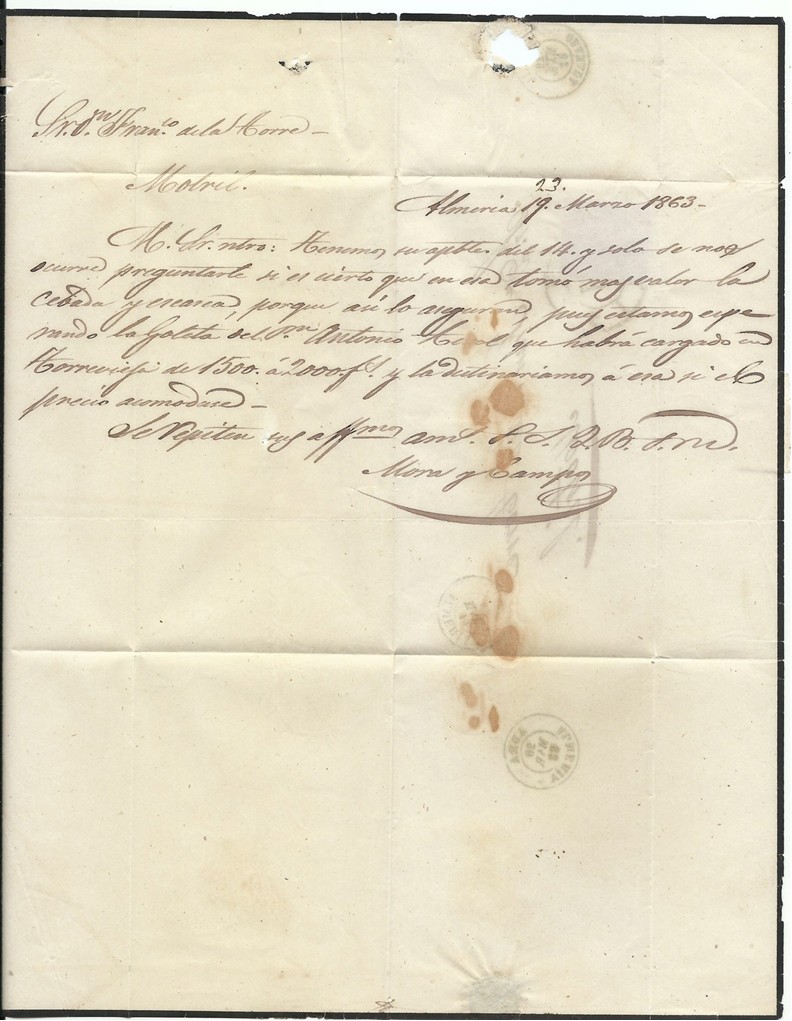 Sr. Dn. Franco. de la Torre –
Motril.
23.
Almeria 19. Marzo 1863 –
M. Sr. ntro: Tenemos su apble. del 14. y solo se nos
ocurre preguntarle si es cierto que en esa tomó mas valor la
cebada y escasea, porque asi lo aseguran, pues estamos espe
rando la Goleta del Pn. Antonio que habrá cargado en
Torrevieja de 1500. á 2000 fs. y la destinariamos á esa si el
precio acomodase –
Se repiten sus affmos. ams. S. S. Q. B. S. M.
Mora y Campos
ALMERIA
ADRA
ALMERIA